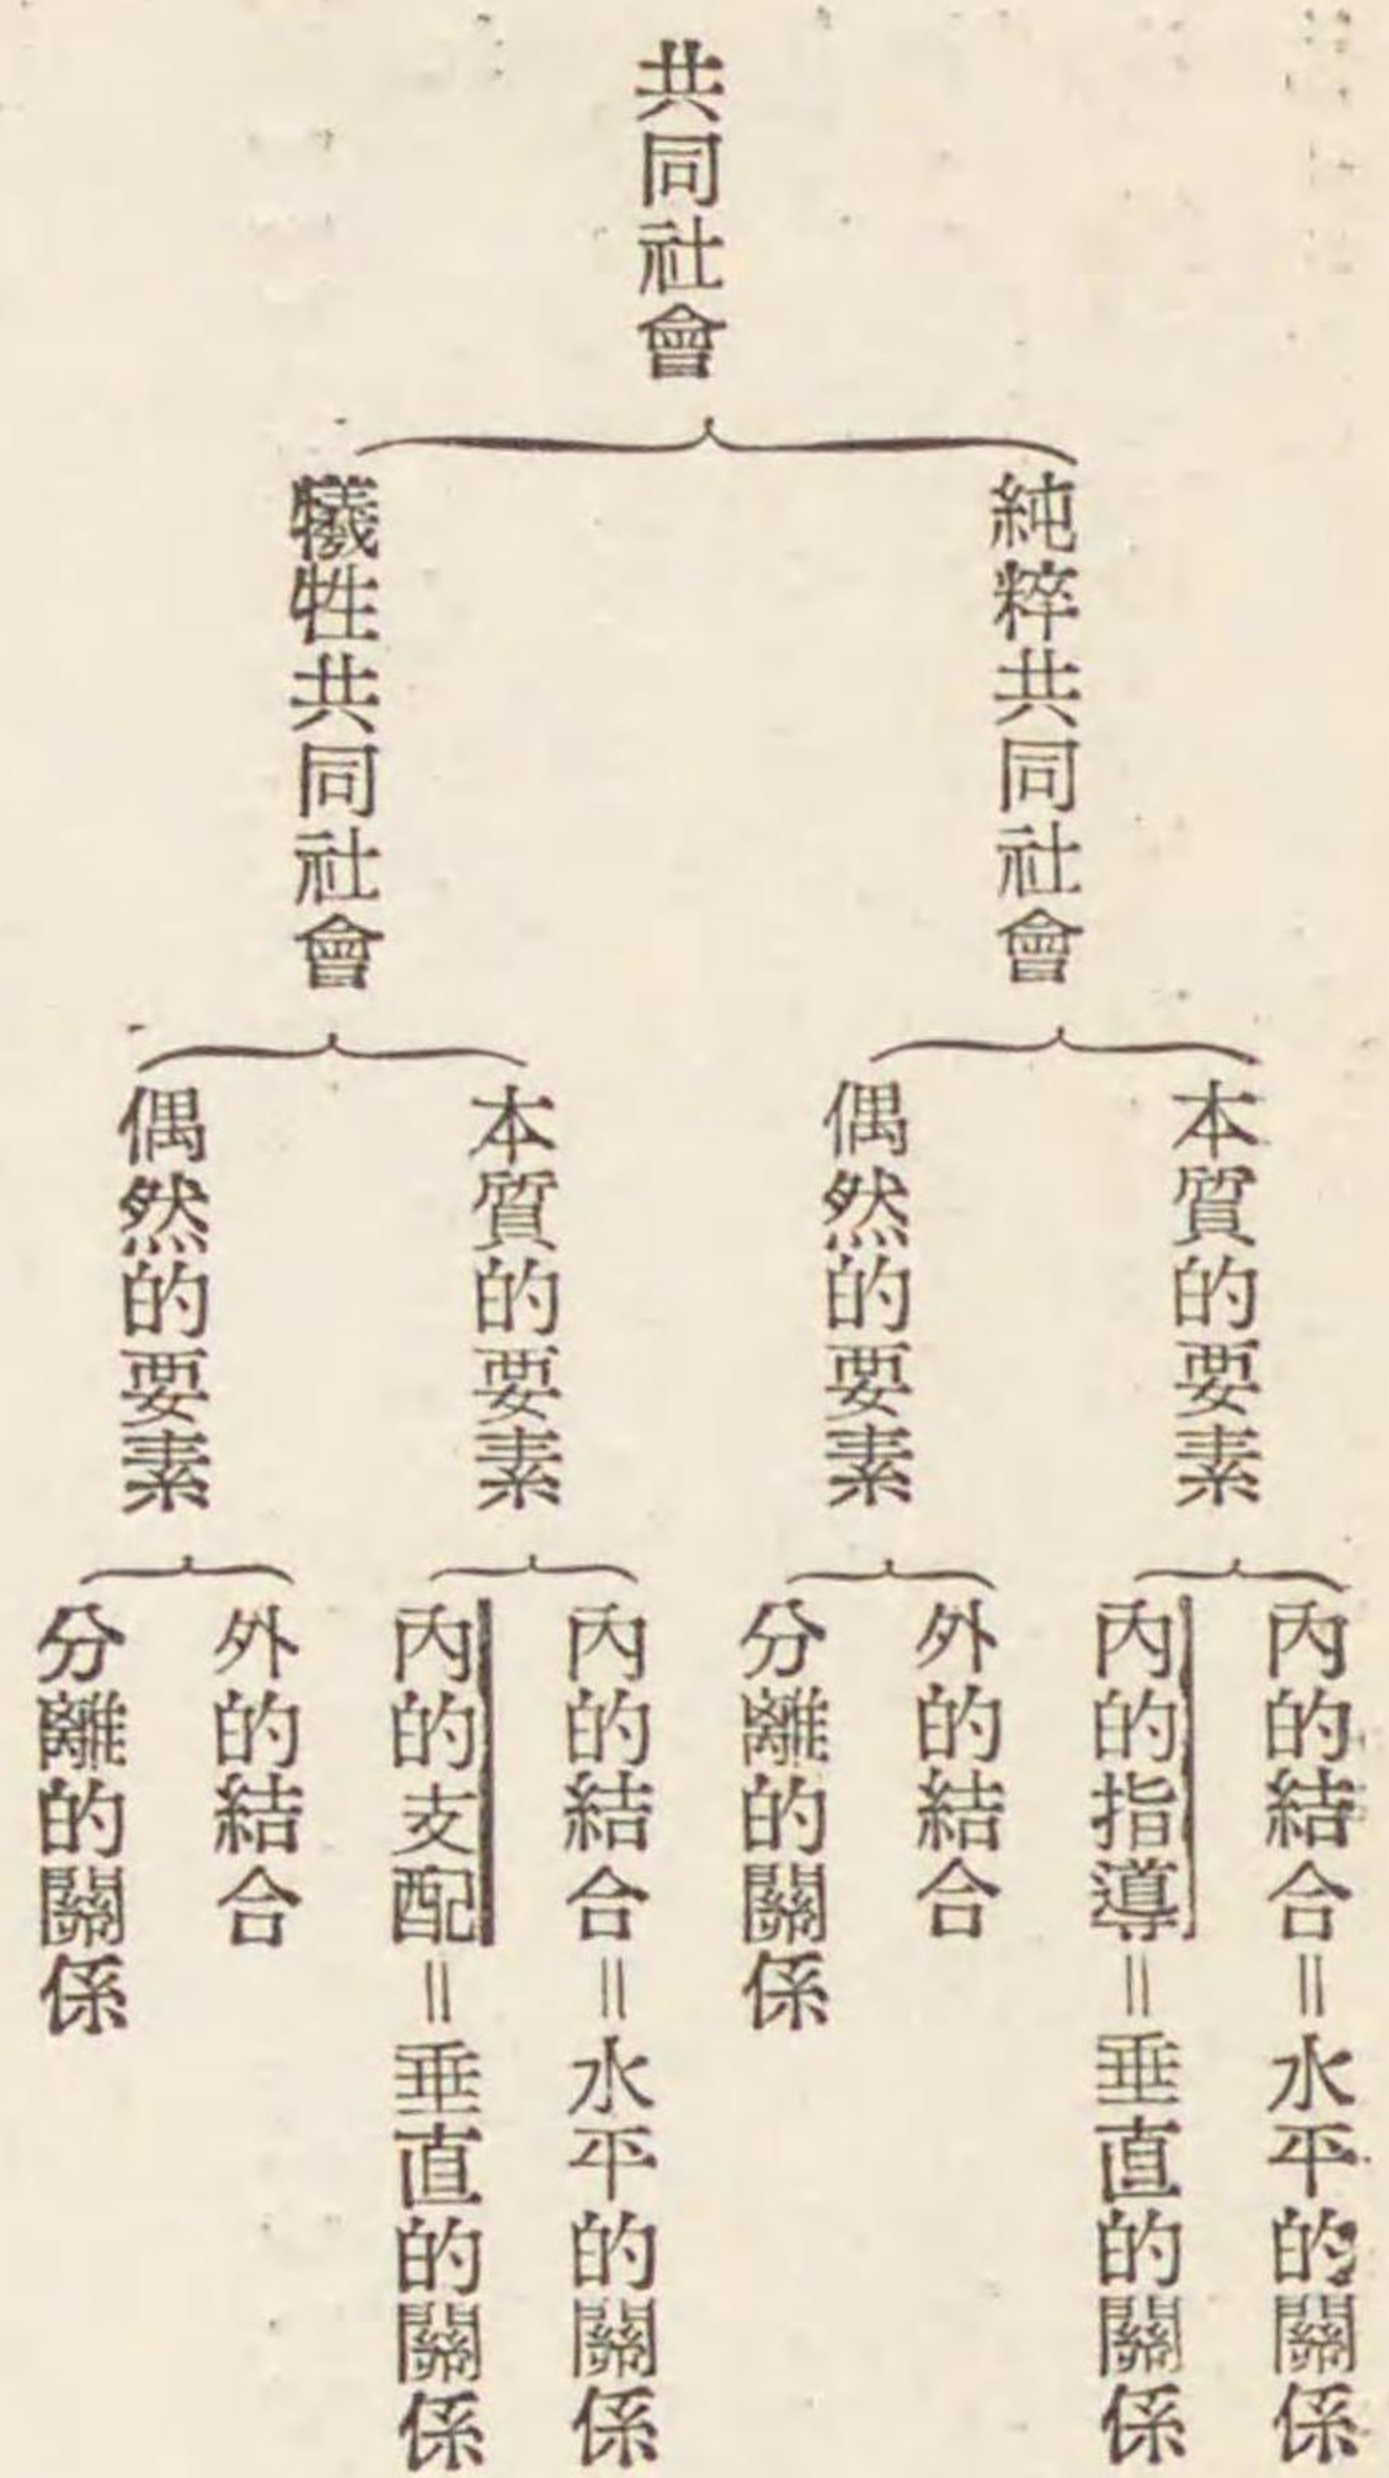 共同社會
純粹共同社會
本質的要素
內的結合＝水平的關係
內的指導＝垂直的關係
偶然的要素
外的結合
分離的關係
犧牲共同社會
本質的要素
內的結合＝水平的關係
內的支配＝垂直的關係
偶然的要素
外的結合
分離的關係